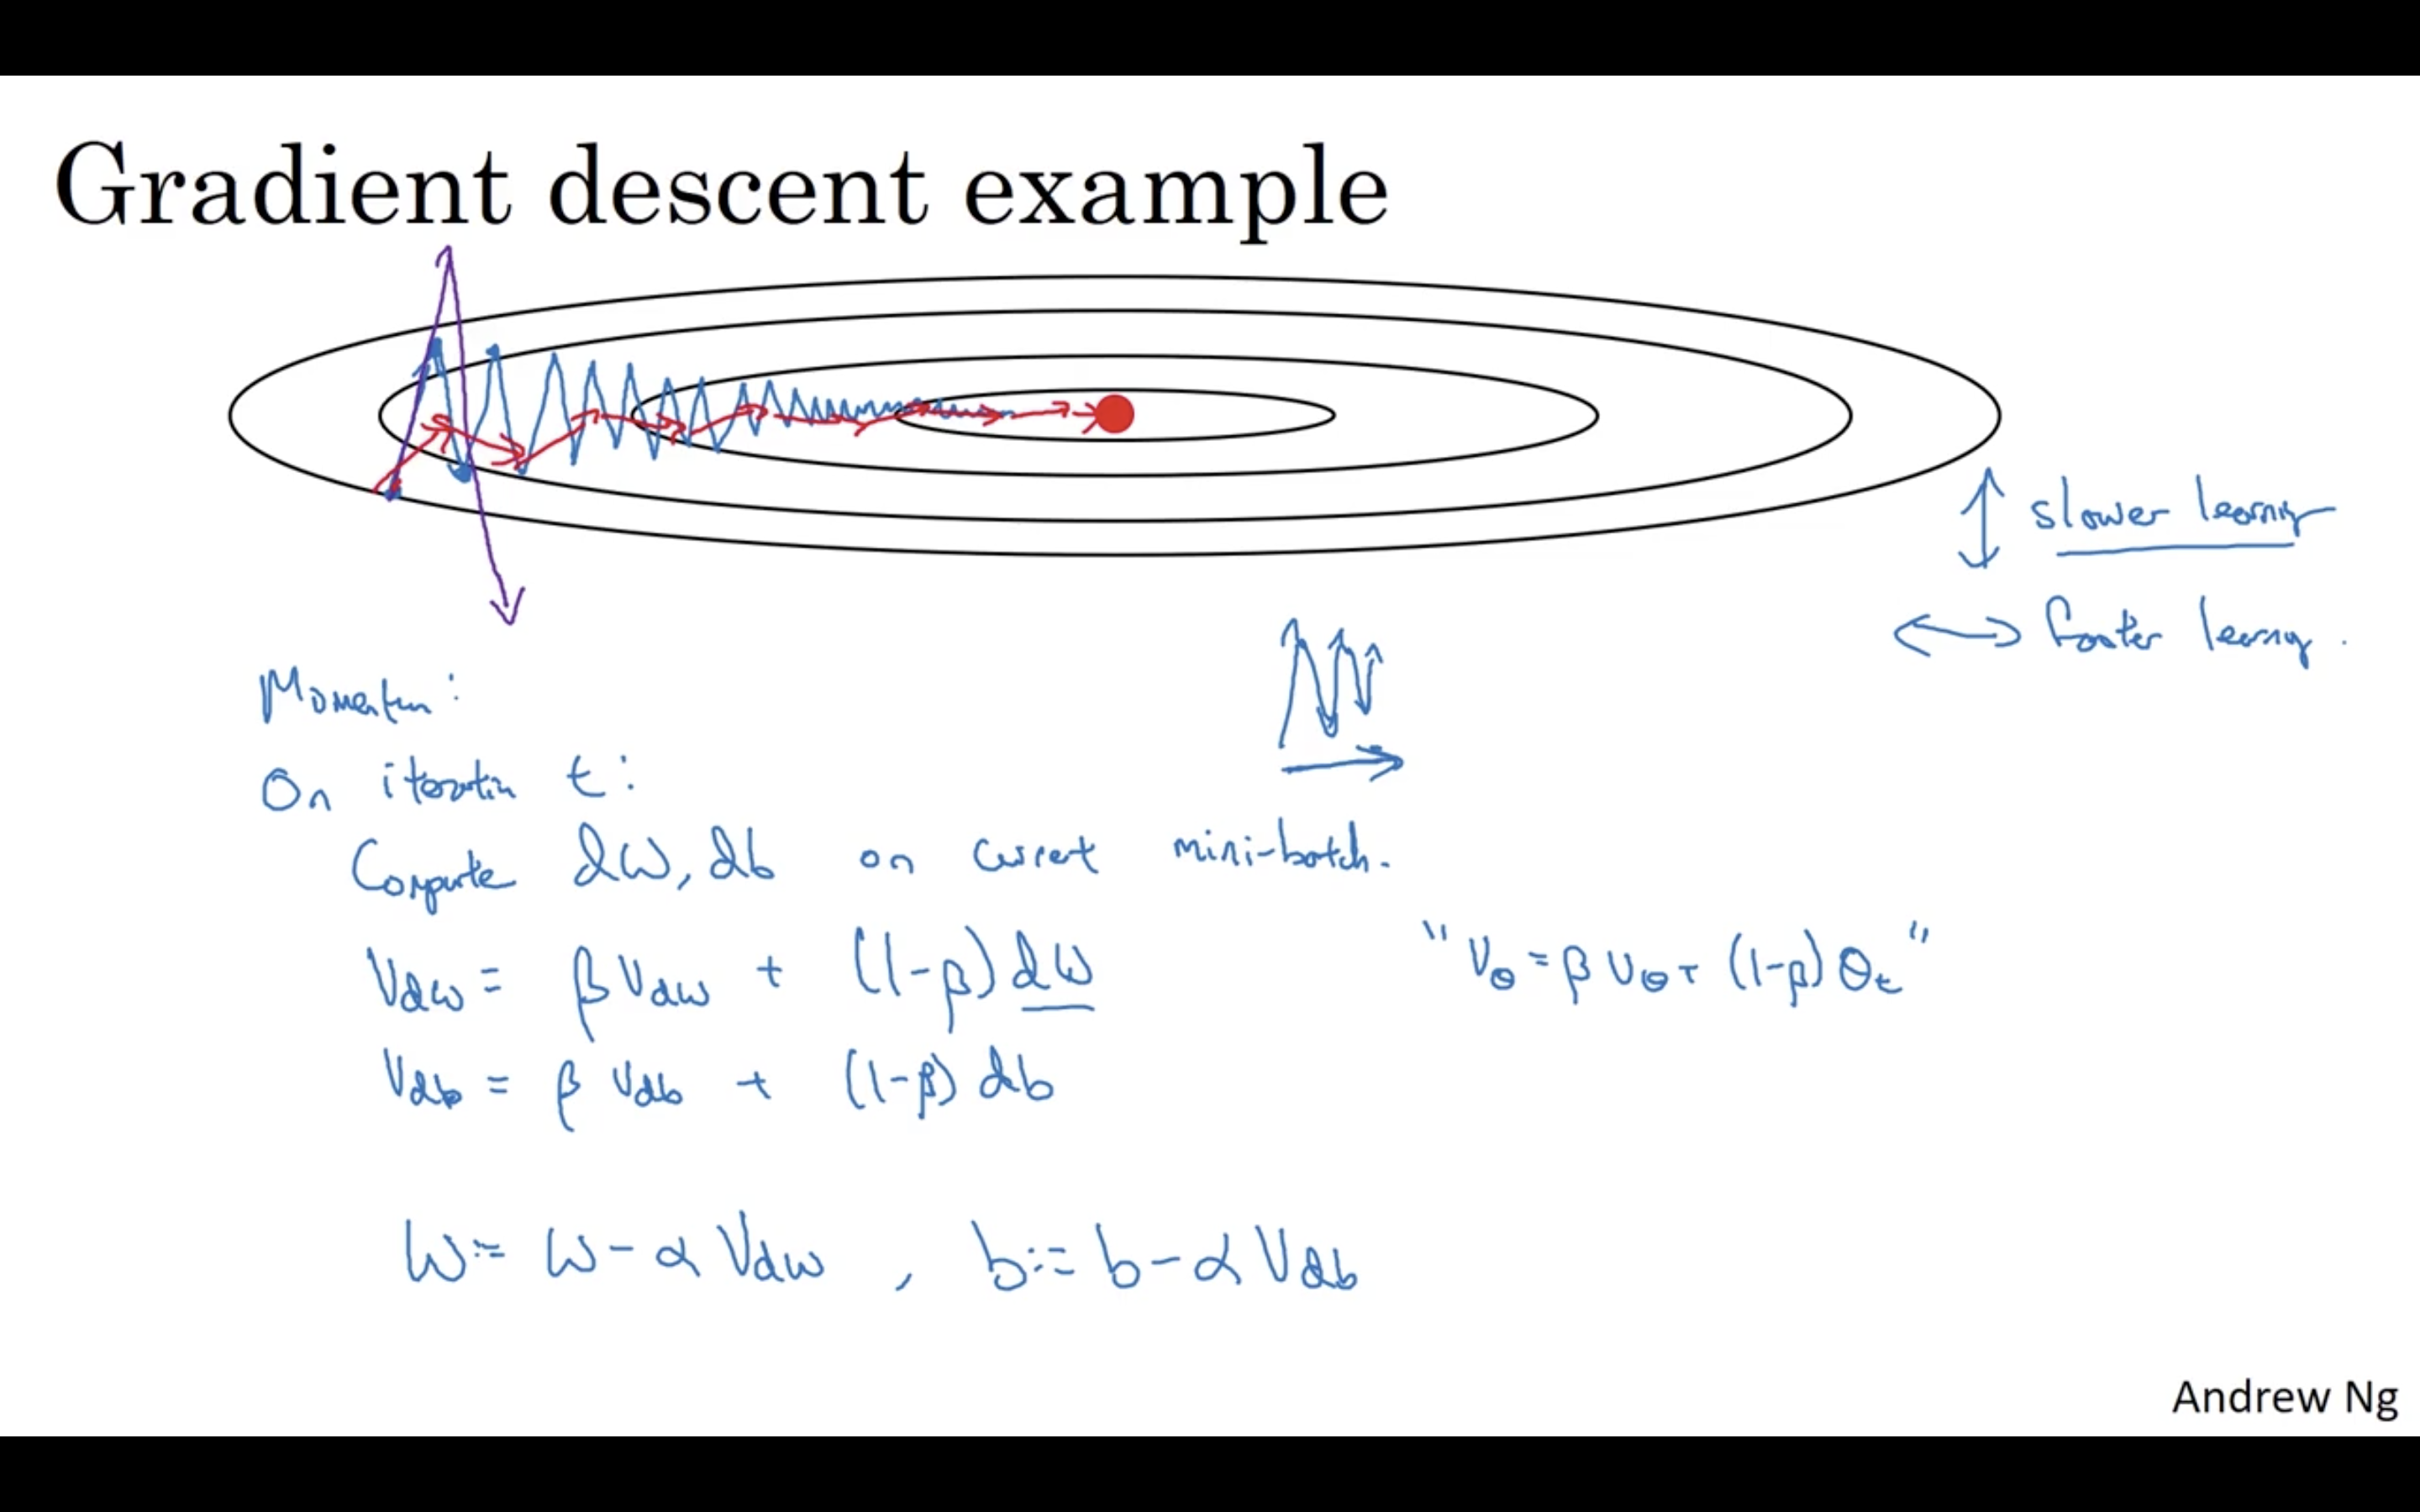 Gradient descent example
slower learning
faster learning.
Momentum:
On iteration t:
Compute dW, db on current mini-batch.
Vdw = β Vdw + (1-β) dW
"Vθ = β Vθ + (1-β) θt"
Vdb = β Vdb + (1-β) db
W := W - α Vdw , b := b - α Vdb
Andrew Ng